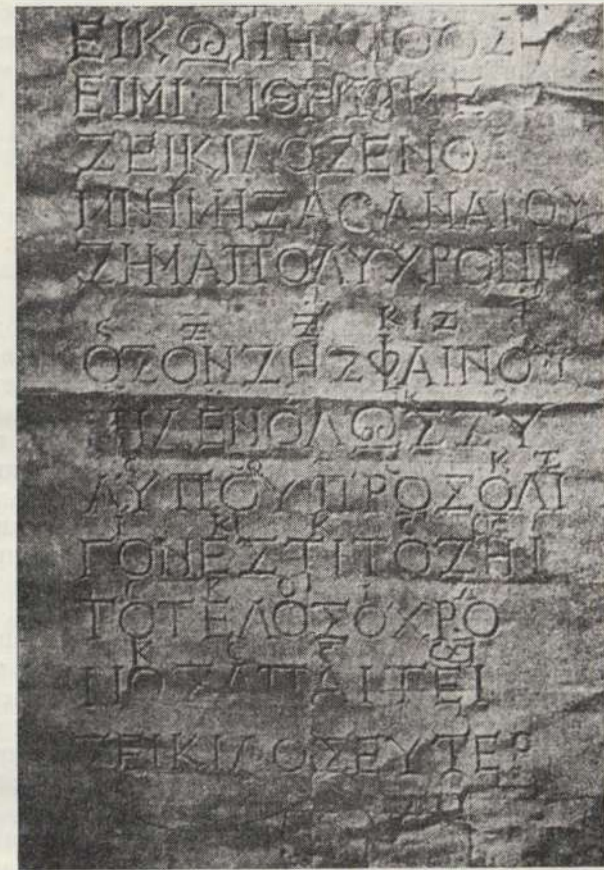 ΕΙΚΩΝΗΛΙΘΟΣ
ΕΙΜΙΤΙΘΗΣΙΜΕ
ΣΕΙΚΙΛΟΣΕΝΘΑ
ΜΝΗΜΗΣΑΘΑΝΑΤΟΥ
ΣΗΜΑΠΟΛΥΧΡΟΝΙΟ
C Z Z ΚΙΖ Ι
ΟΣΟΝΖΗΣΦΑΙΝΟΥ
ΜΗΔΕΝΟΛΩΣΣΥ
Κ Ζ
ΛΥΠΟΥΠΡΟΣΟΛΙ
ΚΙ Κ
ΓΟΝΕΣΤΙΤΟΖΗΝ
C Κ Ο Ι
ΤΟΤΕΛΟΣΟΧΡΟ
Κ C
ΝΟΣΑΠΑΙΤΕΙ
ΣΕΙΚΙΛΟΣΕΥΤΕΡ